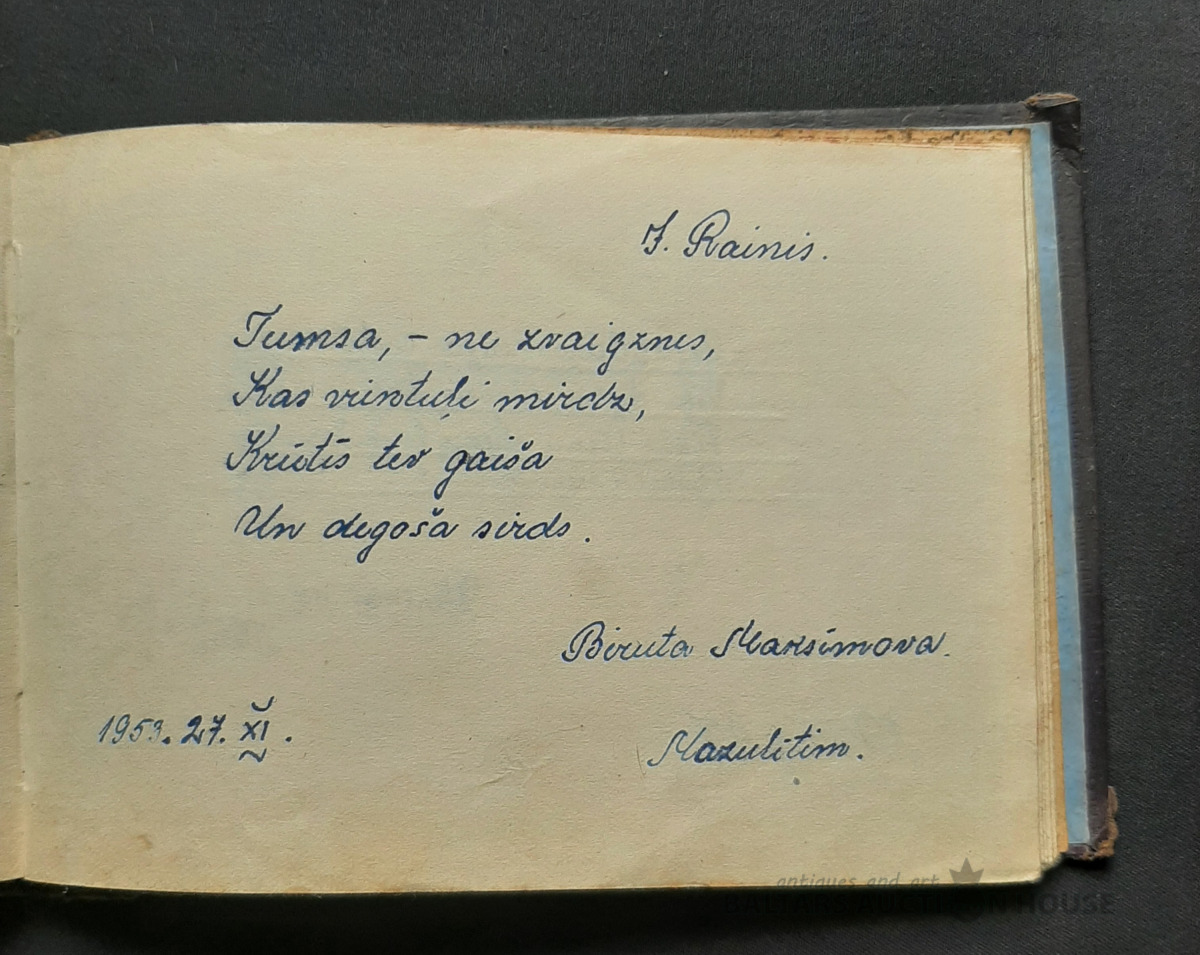 J. Rainis.
Tumsa, - ne zvaigznes,
Kas vientuļi mirdz,
Krūtīs tev gaiša
Un degoša sirds.
Biruta Maksimova.
1953. 27. XI.
Mazulītim.
antiques and art
BALTARS AUCTION HOUSE